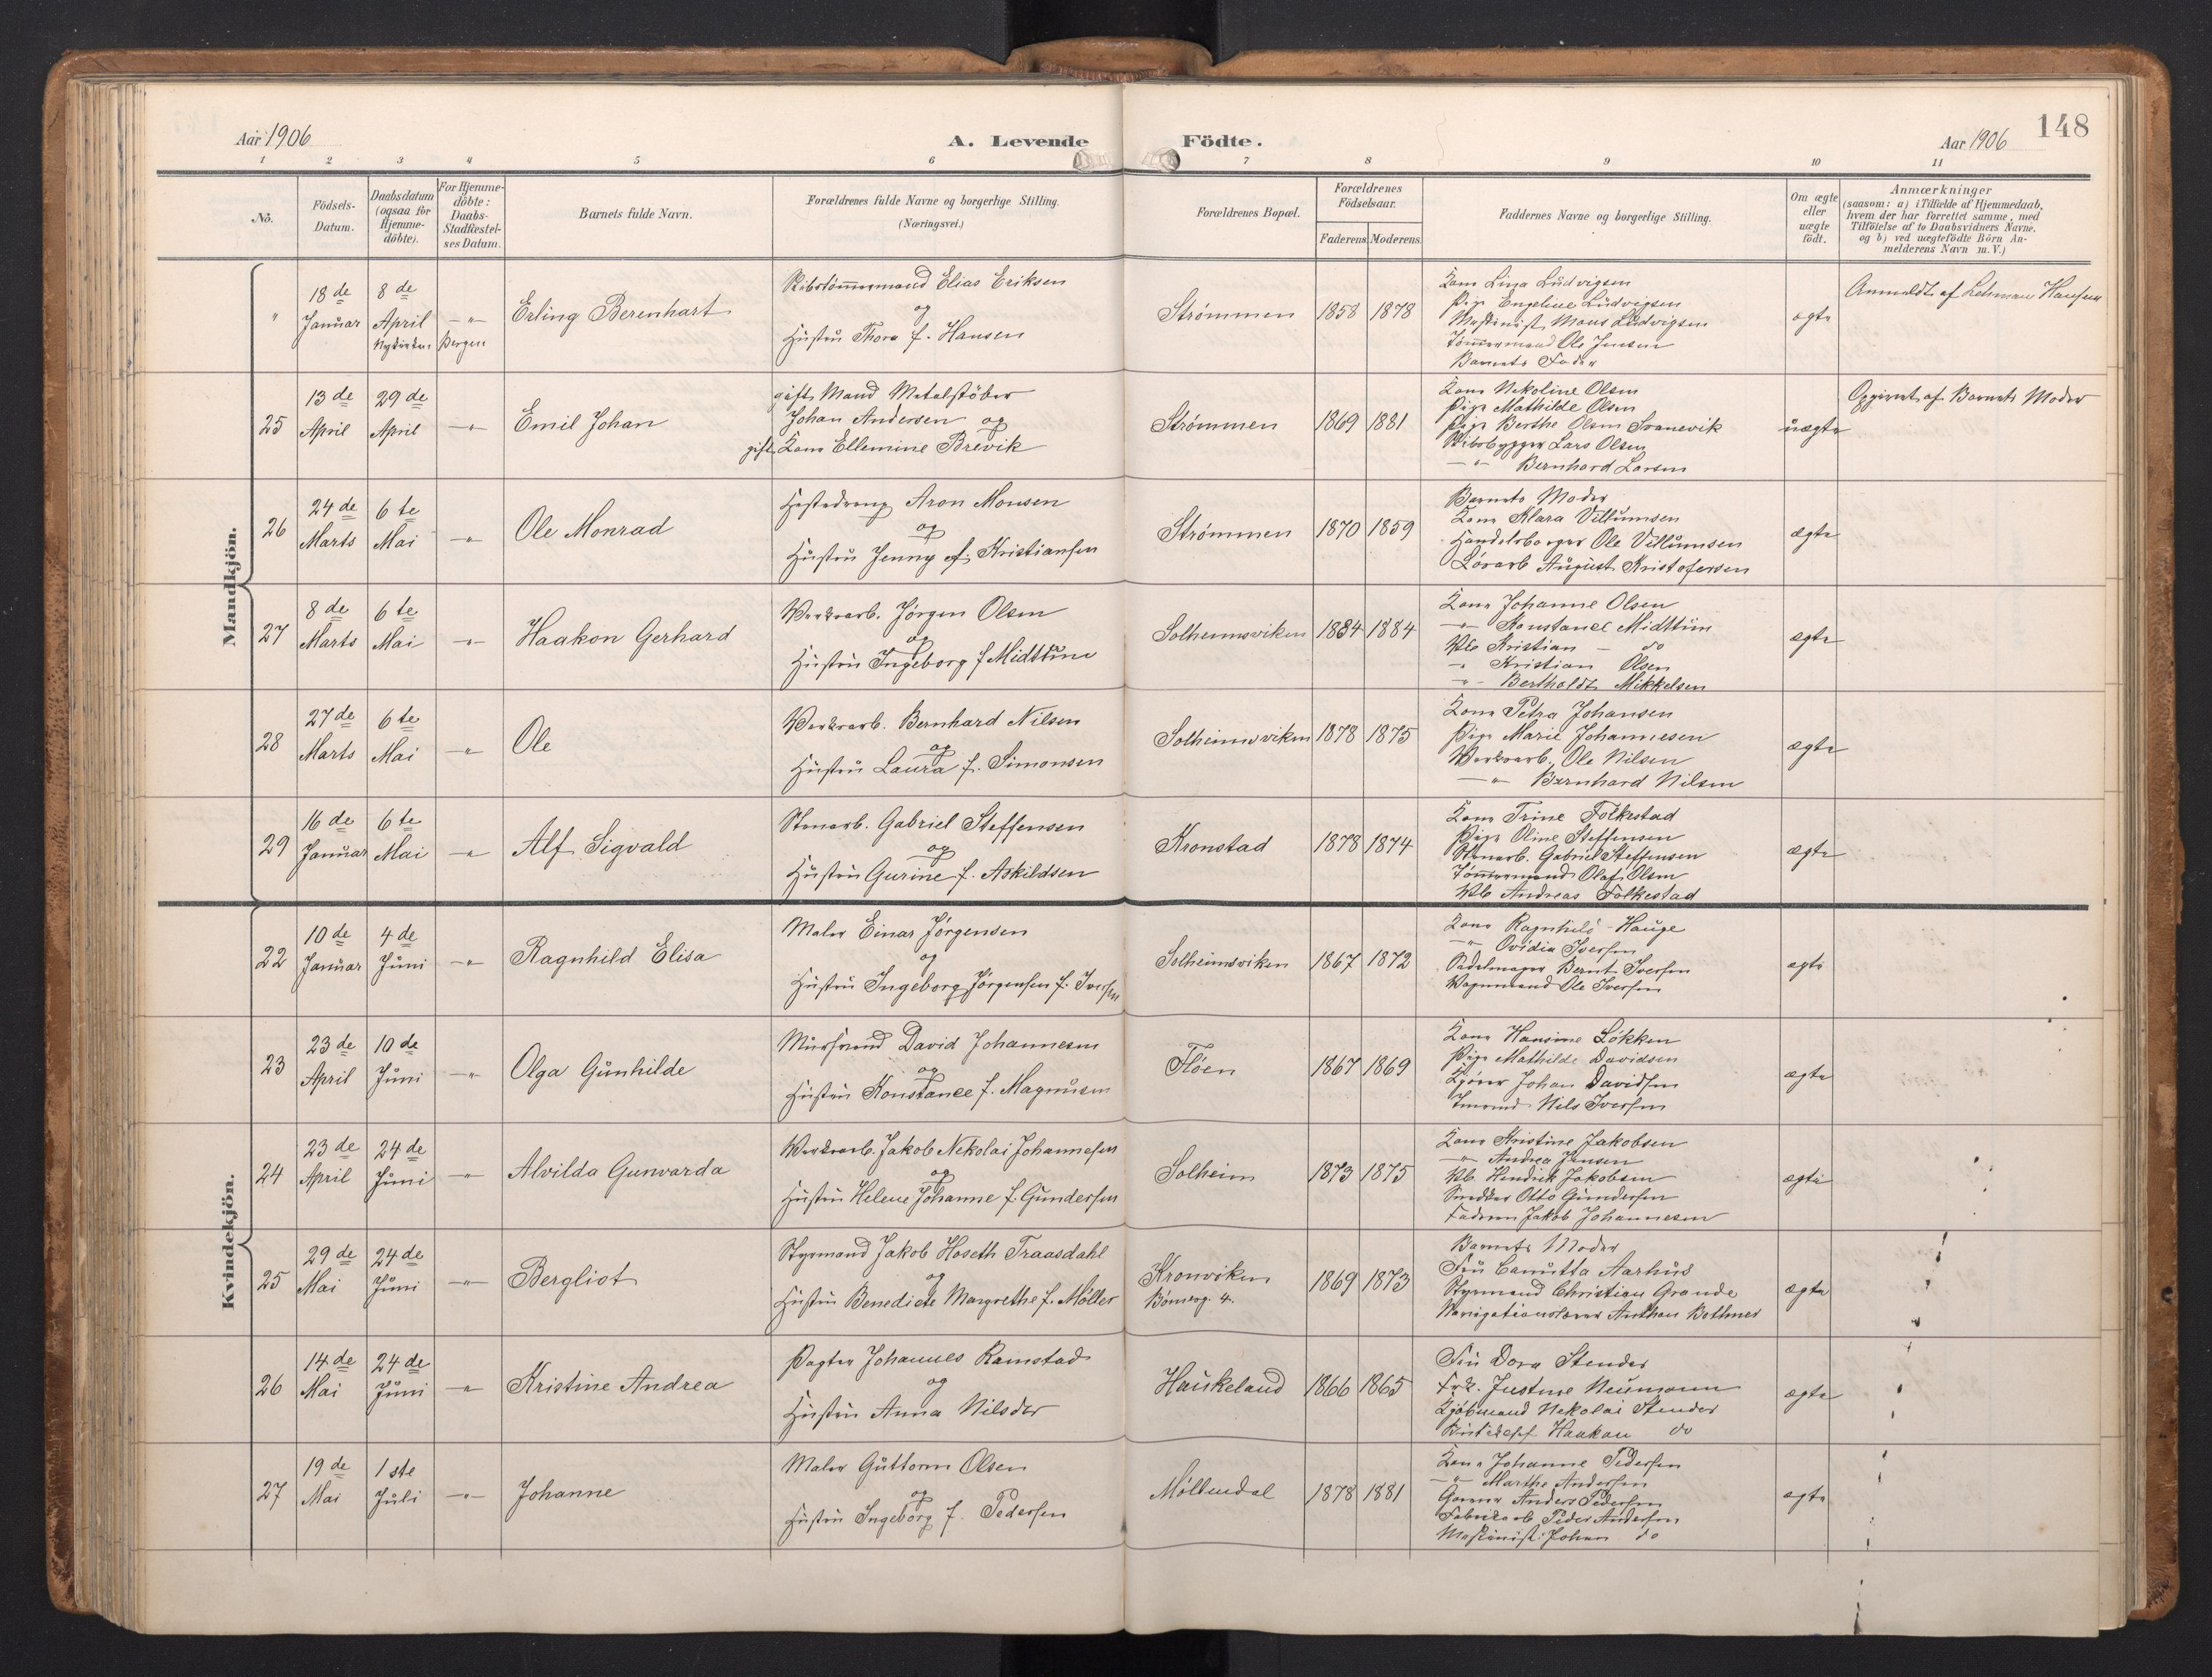 148
Aar 1906
A. Levende Födte.
Aar 1906
1 2 3 4 5 6 7 8 9 10 11
No.
Födsels-Datum.
Daabsdatum (ogsaa for Hjemme-döbte).
For Hjemme-döbte: Daabs-Stadfæstel-ses Datum.
Barnets fulde Navn.
Forældrenes fulde Navne og borgerlige Stilling.
(Næringsvei.)
Forældrenes Bopæl.
Forældrenes Födselsaar.
Faderens. Moderens.
Faddernes Navne og borgerlige Stilling.
Om ægte eller uægte födt.
Anmærkninger
(saasom: a) i Tilfælde af Hjemmedaab,
hvem der har forrettet samme, med
Tilföielse af to Daabsvidners Navne,
og b) ved uægtefödte Börn An-
melderens Navn m. V.)
Mandkjön.
" 18de Januar 8de April Nykirken Bergen
Erling Berenhart
Skibstömmermand Elias Eriksen
og
Hustru Thora f. Hansen
Strømmen 1858 1878
Kone Lina Ludvigsen
Pige Engeline Ludvigsen
Maskinist Mons Ludvigsen
Tömmermand Ole Jensen
Barnets Fader
ægte
Anmeldt af Lehmann Hansen
25 13de April 29de April -"-
Emil Johan
gift Mand Metalstöber
Johan Andersen og
gift Kone Ellemine Brevik
Strømmen 1869 1881
Kone Nekoline Olsen
Pige Mathilde Olsen
Pige Berthe Olsen Svanevik
Skibsbygger Lars Olsen
-"- Bernhard Larsen
uægte
Opgivet af Barnets Moder
26 24de Marts 6te Mai -"-
Ole Monrad
Hestedreng Aron Monsen
og
Hustru Jenny f. Kristiansen
Strømmen 1870 1859
Barnets Moder
Kone Klara Villumsen
Handelsborger Ole Villumsen
Lösarb August Kristofersen
ægte
27 8de Marts 6te Mai -"-
Haakon Gerhard
Verksarb. Jørgen Olsen
og
Hustru Ingeborg f Midttun
Solheimsviken 1884 1884
Kone Johanne Olsen
-"- Konstance Midttun
Vb Kristian - do
-"- Kristian Olsen
-"- Bertholdt Mikkelsen
ægte
28 27de Marts 6te Mai -"-
Ole
Verksarb. Bernhard Nilsen
og
Hustru Laura f. Simonsen
Solheimsviken 1878 1875
Kone Petra Johansen
Pige Marie Johannesen
Verksarb. Ole Nilsen
-"- Bernhard Nilsen
ægte
29 16de Januar 6te Mai -"-
Alf Sigvald
Stenarb. Gabriel Steffensen
og
Hustru Gurine f. Askildsen
Kronstad 1878 1874
Kone Trine Folkestad
Pige Oline Steffensen
Stenarb. Gabriel Steffensen
Tömmermand Olaf Olsen
Vb Andreas Folkestad
ægte
Kvindekjön.
22 10de Januar 4de Juni -"-
Ragnhild Elisa
Maler Einar Jørgensen
og
Hustru Ingeborg Jørgensen f. Iversen
Solheimsviken 1867 1872
Kone Ragnhild Hauge
-"- Ovidia Iversen
Sadelmager Bernt Iversen
Vognmand Ole Iversen
ægte
23 23de April 10de Juni -"-
Olga Gunhilde
Mursvend David Johannesen
og
Hustru Konstance f. Magnusen
Fløen 1867 1869
Kone Hansine Løkken
Pige Mathilde Davidsen
Kjører Johan Davidsen
Nils Iversen
ægte
24 23de April 24de Juni -"-
Alvilda Gunvarda
Verksarb. Jakob Nekolai Johannesen
og
Hustru Helene Johanne f. Gundersen
Solheim 1873 1875
Kone Kristine Jakobsen
-"- Andrea Jensen
Vb. Hendrik Jakobsen
Snedker Otto Gundersen
Faderen Jakob Johannesen
ægte
25 29de Mai 24de Juni -"-
Bergliot
Styrmand Jakob Hoseth Traasdahl
og
Hustru Benedicte Margrethe f. Möller
Kronviken 1869 1873
4.
Barnets Moder
Fru Canutta Aarhus
Styrmand Christian Grande
Navigationslærer Bothner
ægte
26 14de Mai 24de Juni -"-
Kristine Andrea
Pagter Johannes Ramstad
og
Hustru Anna Nilsder
Haukeland 1866 1865
Fru Dora Stender
Frk. Justine Neumann
Kjøbmand Nekolai Stender
Haakon do
ægte
27 19de Mai 1ste Juli -"-
Johanne
Maler Guttorm Olsen
og
Hustru Ingeborg f. Pedersen
Møllendal 1878 1881
Kone Johanne Pedersen
-"- Marthe Andersen
Garver Anders Pedersen
Fabrikarb Peder Andersen
Maskinist Johan do
ægte